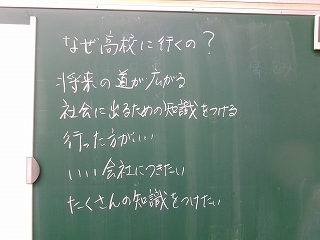 なぜ高校に行くの？
将来の道が広がる
社会に出るための知識をつける
行った方がいい
いい会社につきたい
たくさんの知識をつけたい